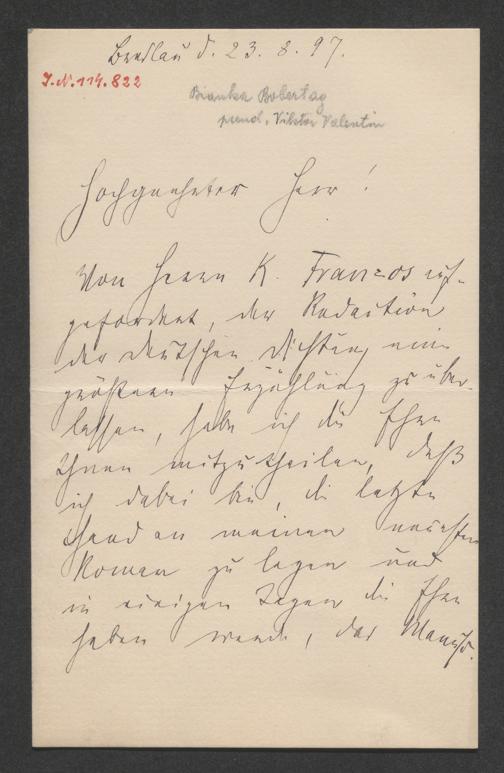 Breslau d. 23. 8. 97.
I.N. 114.822
Bianka Bobertag
pseud. Viktor Valentin
Hochgeehrter Herr!
Von Herrn K. Franzos auf-
gefordert, der Redaction
der Deutschen Dichtung eine
größere Erzählung zu über-
lassen, habe ich die Ehre
Ihnen mitzutheilen, daß
ich dabei bin, die letzte
Hand an meinen neuesten
Roman zu legen und
in einigen Tagen die Ehre
haben werde, das Manuskr.